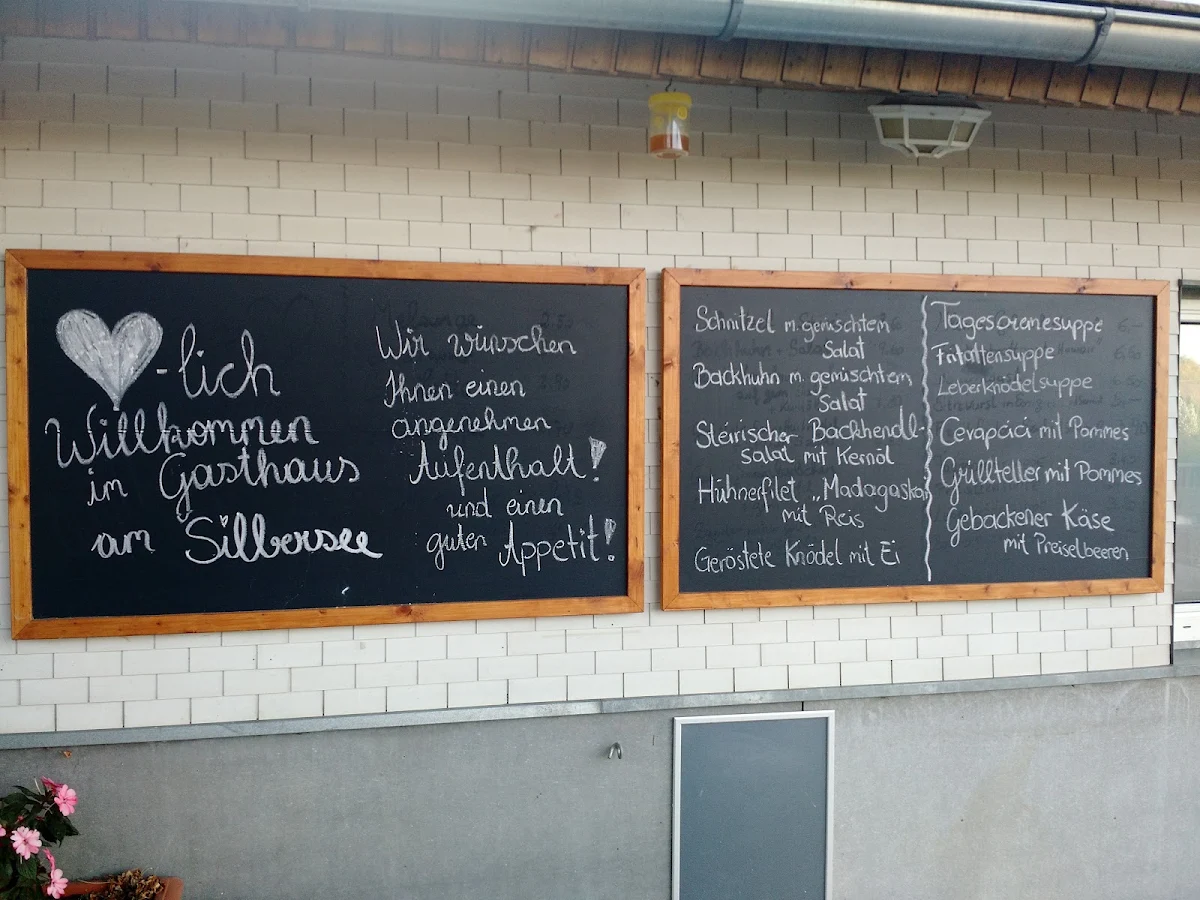 -lich
Willkommen
im Gasthaus
am Silbersee
Wir wünschen
Ihnen einen
angenehmen
Aufenthalt!
und einen
guten Appetit!
Schnitzel m. gemischtem
Salat
Backhuhn m. gemischtem
Salat
Steirischer Backhendl-
salat mit Kernöl
Hühnerfilet „Madagaskar
mit Reis
Geröstete Knödel mit Ei
Tagescremesuppe
Fritattensuppe
Leberknödelsuppe
Cevapcici mit Pommes
Grillteller mit Pommes
Gebackener Käse
mit Preiselbeeren